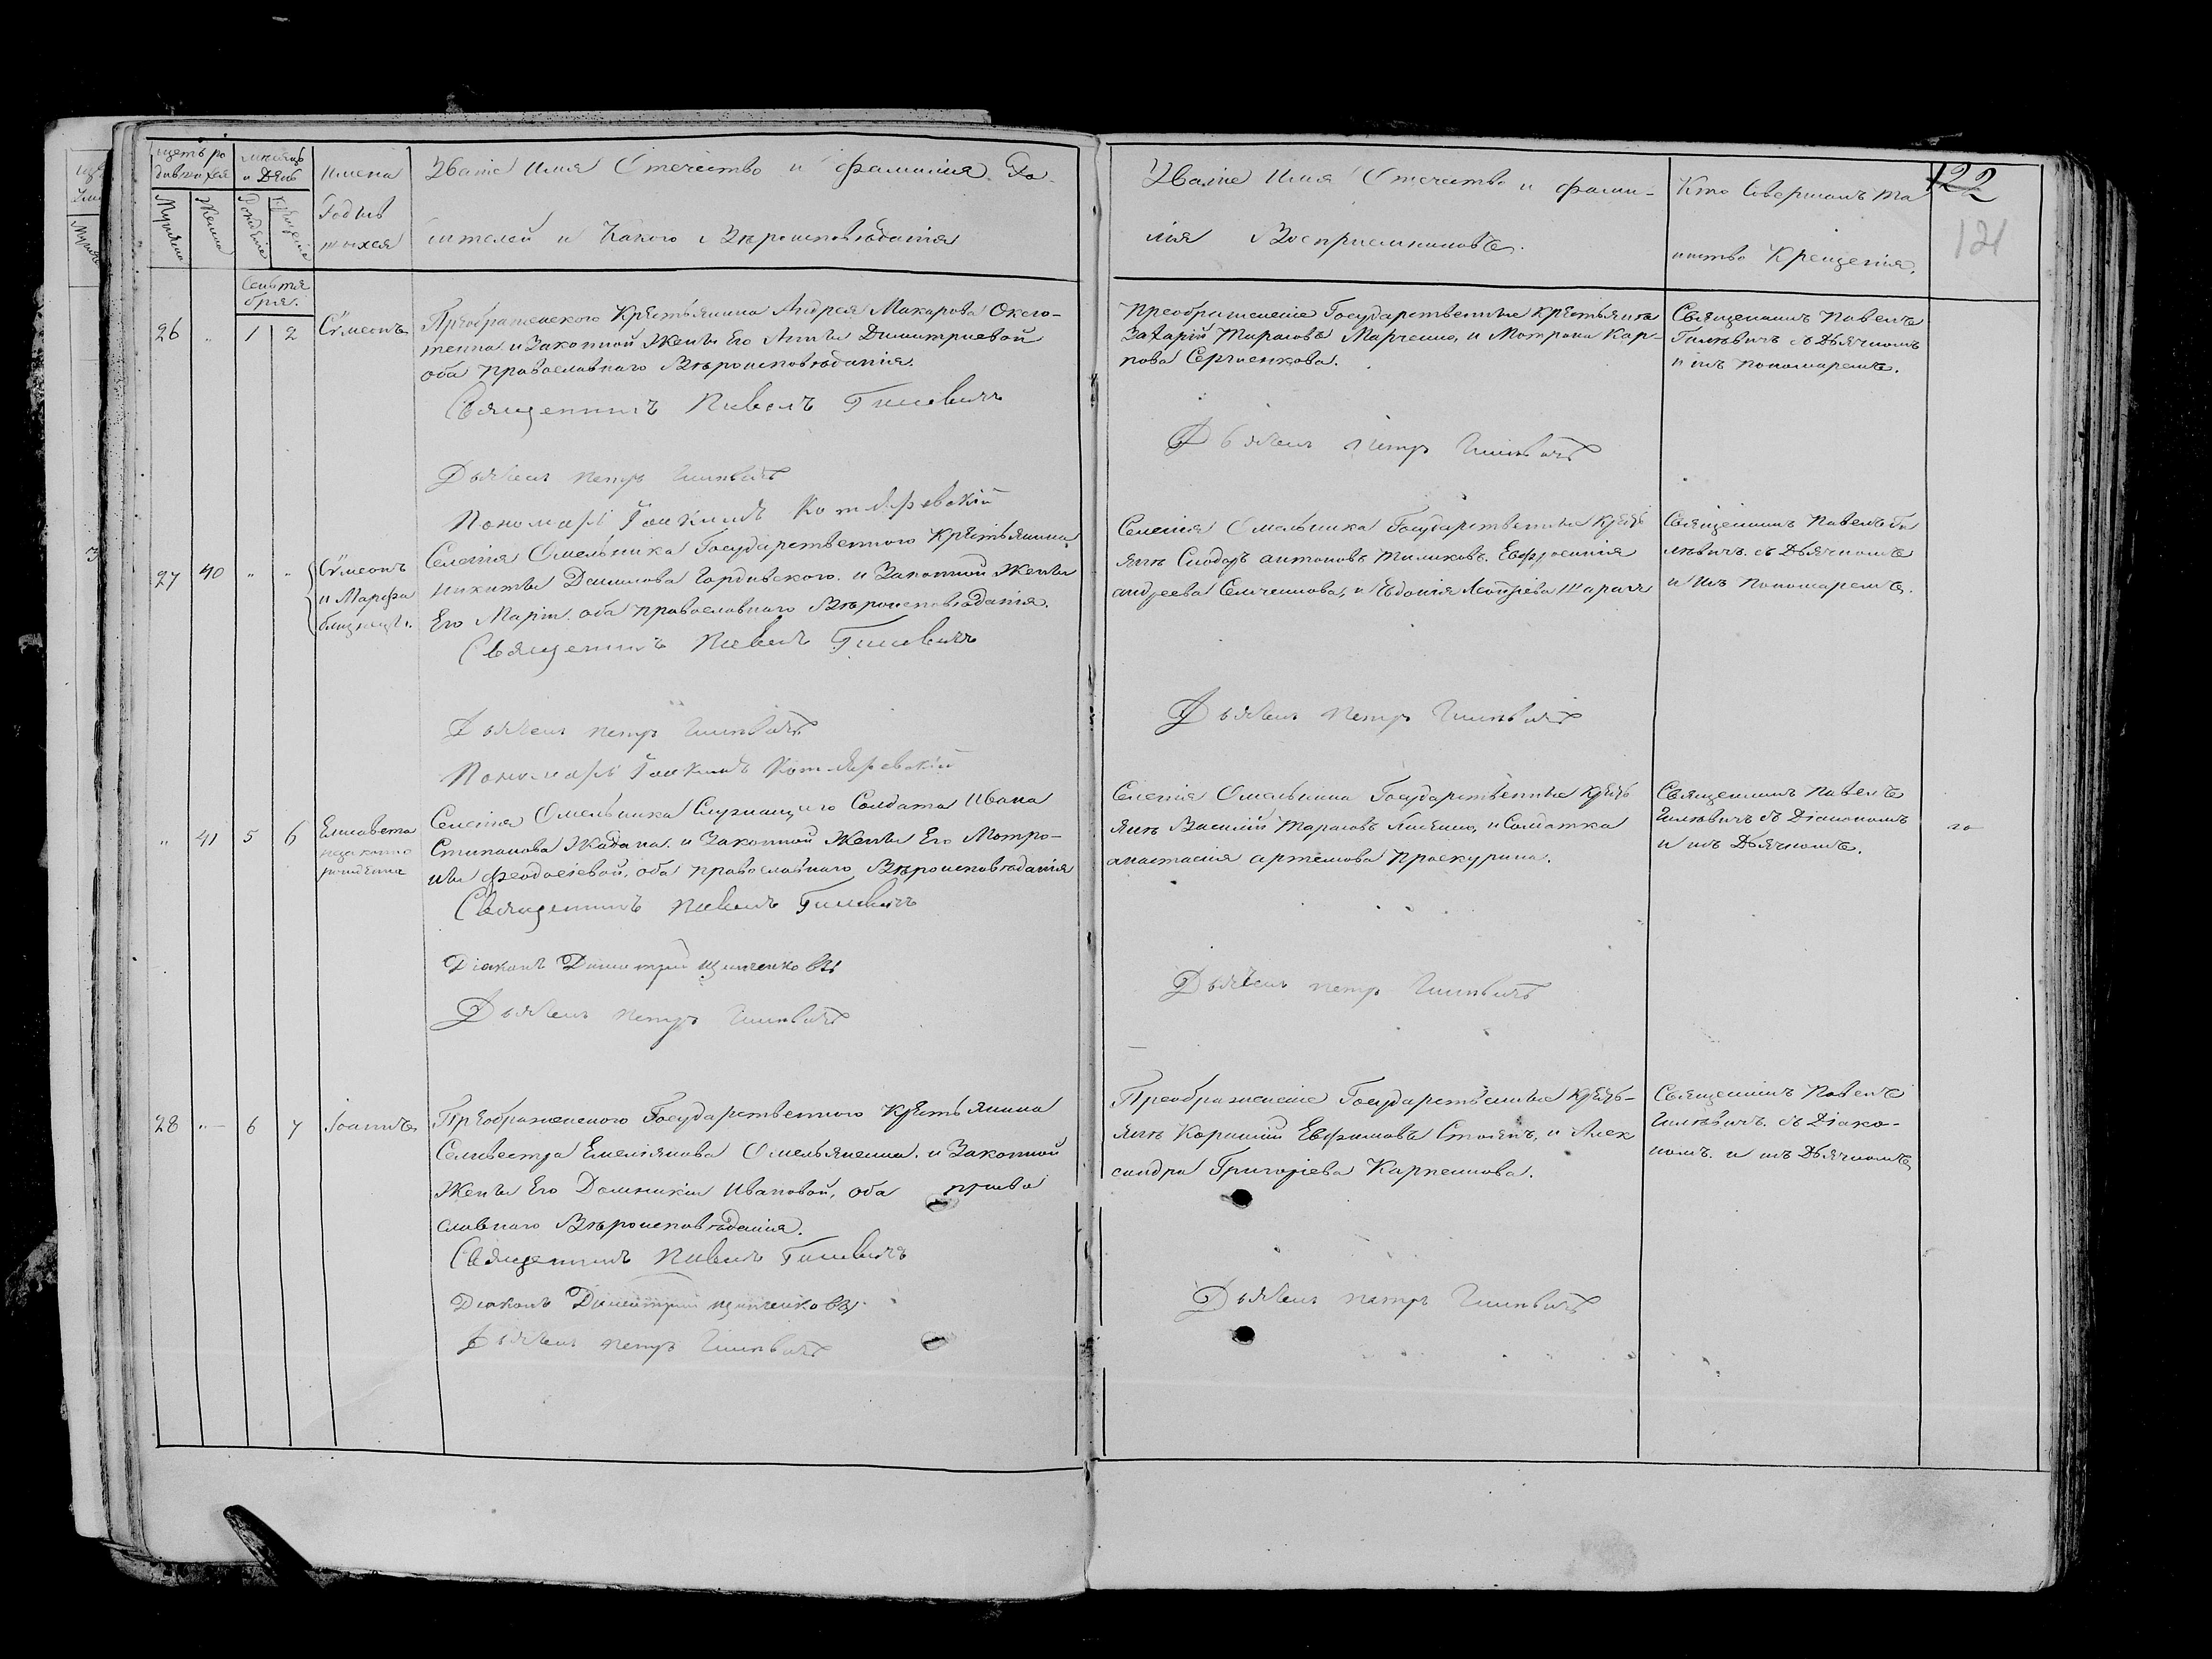 щетъ ро
дившихся
мѣсяцъ
и День
Имена
Родив
шихся
Мужеска
Женска
Рожденіе
Крещеніе
Званіе Имя Отечество и Фамилія Ро
дителей и Какого Вѣроисповѣданія
Званіе Имя Отечество и Фами-
лія Воспріемниковъ.
Кто Совершалъ та
инство Крещенія.
122
121
Сентя
бря.
26 " 1 2 Сѵмеонъ
Преображенского Крестьянина Андрея Макарова
и Законной Жены Его Анны Димитриевой
оба православнаго Вѣроисповѣданія.
Священникъ Павелъ Гилевичъ
Дьячекъ петръ
Пономарь Іоакимъ Котляревскій
Преображенскіе Государственные Крестьяне
Захарій Тарасовъ Марченко, и Мотрона Кар-
пова Сергиенкова.
Дьячекъ петръ
Священникъ Павелъ
Гилѣвичъ съ Дьячкомъ
и пономаремъ.
27 40 " " Сѵмеонъ
и Марфа
близнецы.
Селенія Омельника Государственного Крестьянина
никиты Данилова Гордиевского. и Законной Жены
Его Маріи. оба православнаго Вѣроисповѣданія.
Священникъ Павелъ Гилевичъ
Дьячекъ петръ
Пономарь Іоакимъ Котляревскій
Селенія Омельника Государственные Крестъ
яне антоновъ Евфросинія
андреева Семченкова, и Евдокія
Дьячекъ петръ
Священникъ Павелъ Ги
лѣвичъ. съ Дьячкомъ
и пономаремъ.
" 41 5 6 Елисавета
незаконно
рожденна
Селенія Омельника Служащего Солдата Ивана
Стипанова Жадана. и Законной Жены Его Мотро-
ны Феодосіевой, оба православнаго Вѣроисповѣданія
Священникъ Павелъ Гилевичъ
Діаконъ Димитрій
Дьячекъ петръ
Селенія Омельника Государственные Крестъ
яне Василій Тарасовъ и Солдатка
анастасія артемова Проскурина.
Дьячекъ петръ
Священникъ Павелъ
Гилѣвичъ съ Діакономъ
и Дьячкомъ.
28 " 6 7 Іоаннъ
Преображенского Государственного Крестьянина
Селивестра Емелянова Омельяненка. и Законной
Жены Его Домникіи Ивановой, оба право
славнаго Вѣроисповѣданія.
Священникъ Павелъ Гилевичъ
Діаконъ Димитрій
Дьячекъ петръ
Преображенскіе Государственные Крестъ-
яне Корнилий Евфимовъ Стоянъ, и Алек
сандра Григоріева Карпенкова.
Дьячекъ петръ
Священникъ Павелъ
Гилѣвичъ. съ Діако-
номъ. и Дьячкомъ